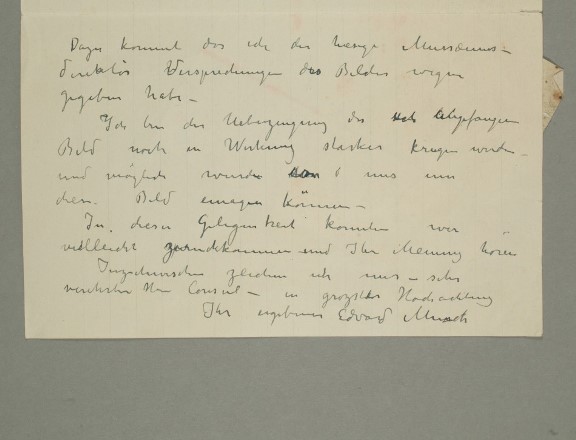 Dazu kommt das ich der hiesige Museums-
direktör Versprechungen des Bildes wegen
gegeben habe -
Ich bin der Ueberzeugung das
Bild noch in Wirkung starker kriegen werde -
und möglich wurde uns
dies. Bild können -
In dieser Gelegenheit konnten wir
vielleicht zurückkommen und Ihr Meinung hören
Inzwischen zeichne ich mich - sehr
verehrter Herr Consul - in grosster Hochachtung
Ihr ergebener Edvard Munch